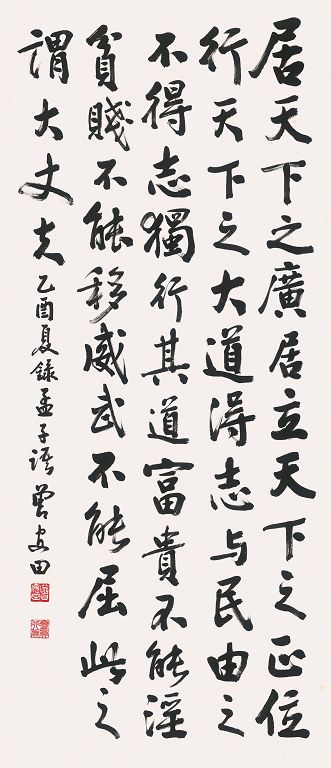 居天下之廣居立天下之正位
行天下之大道得志與民由之
不得志獨行其道富貴不能淫
貧賤不能移威武不能屈此之
謂大丈夫 乙酉夏錄孟子語 曾安田